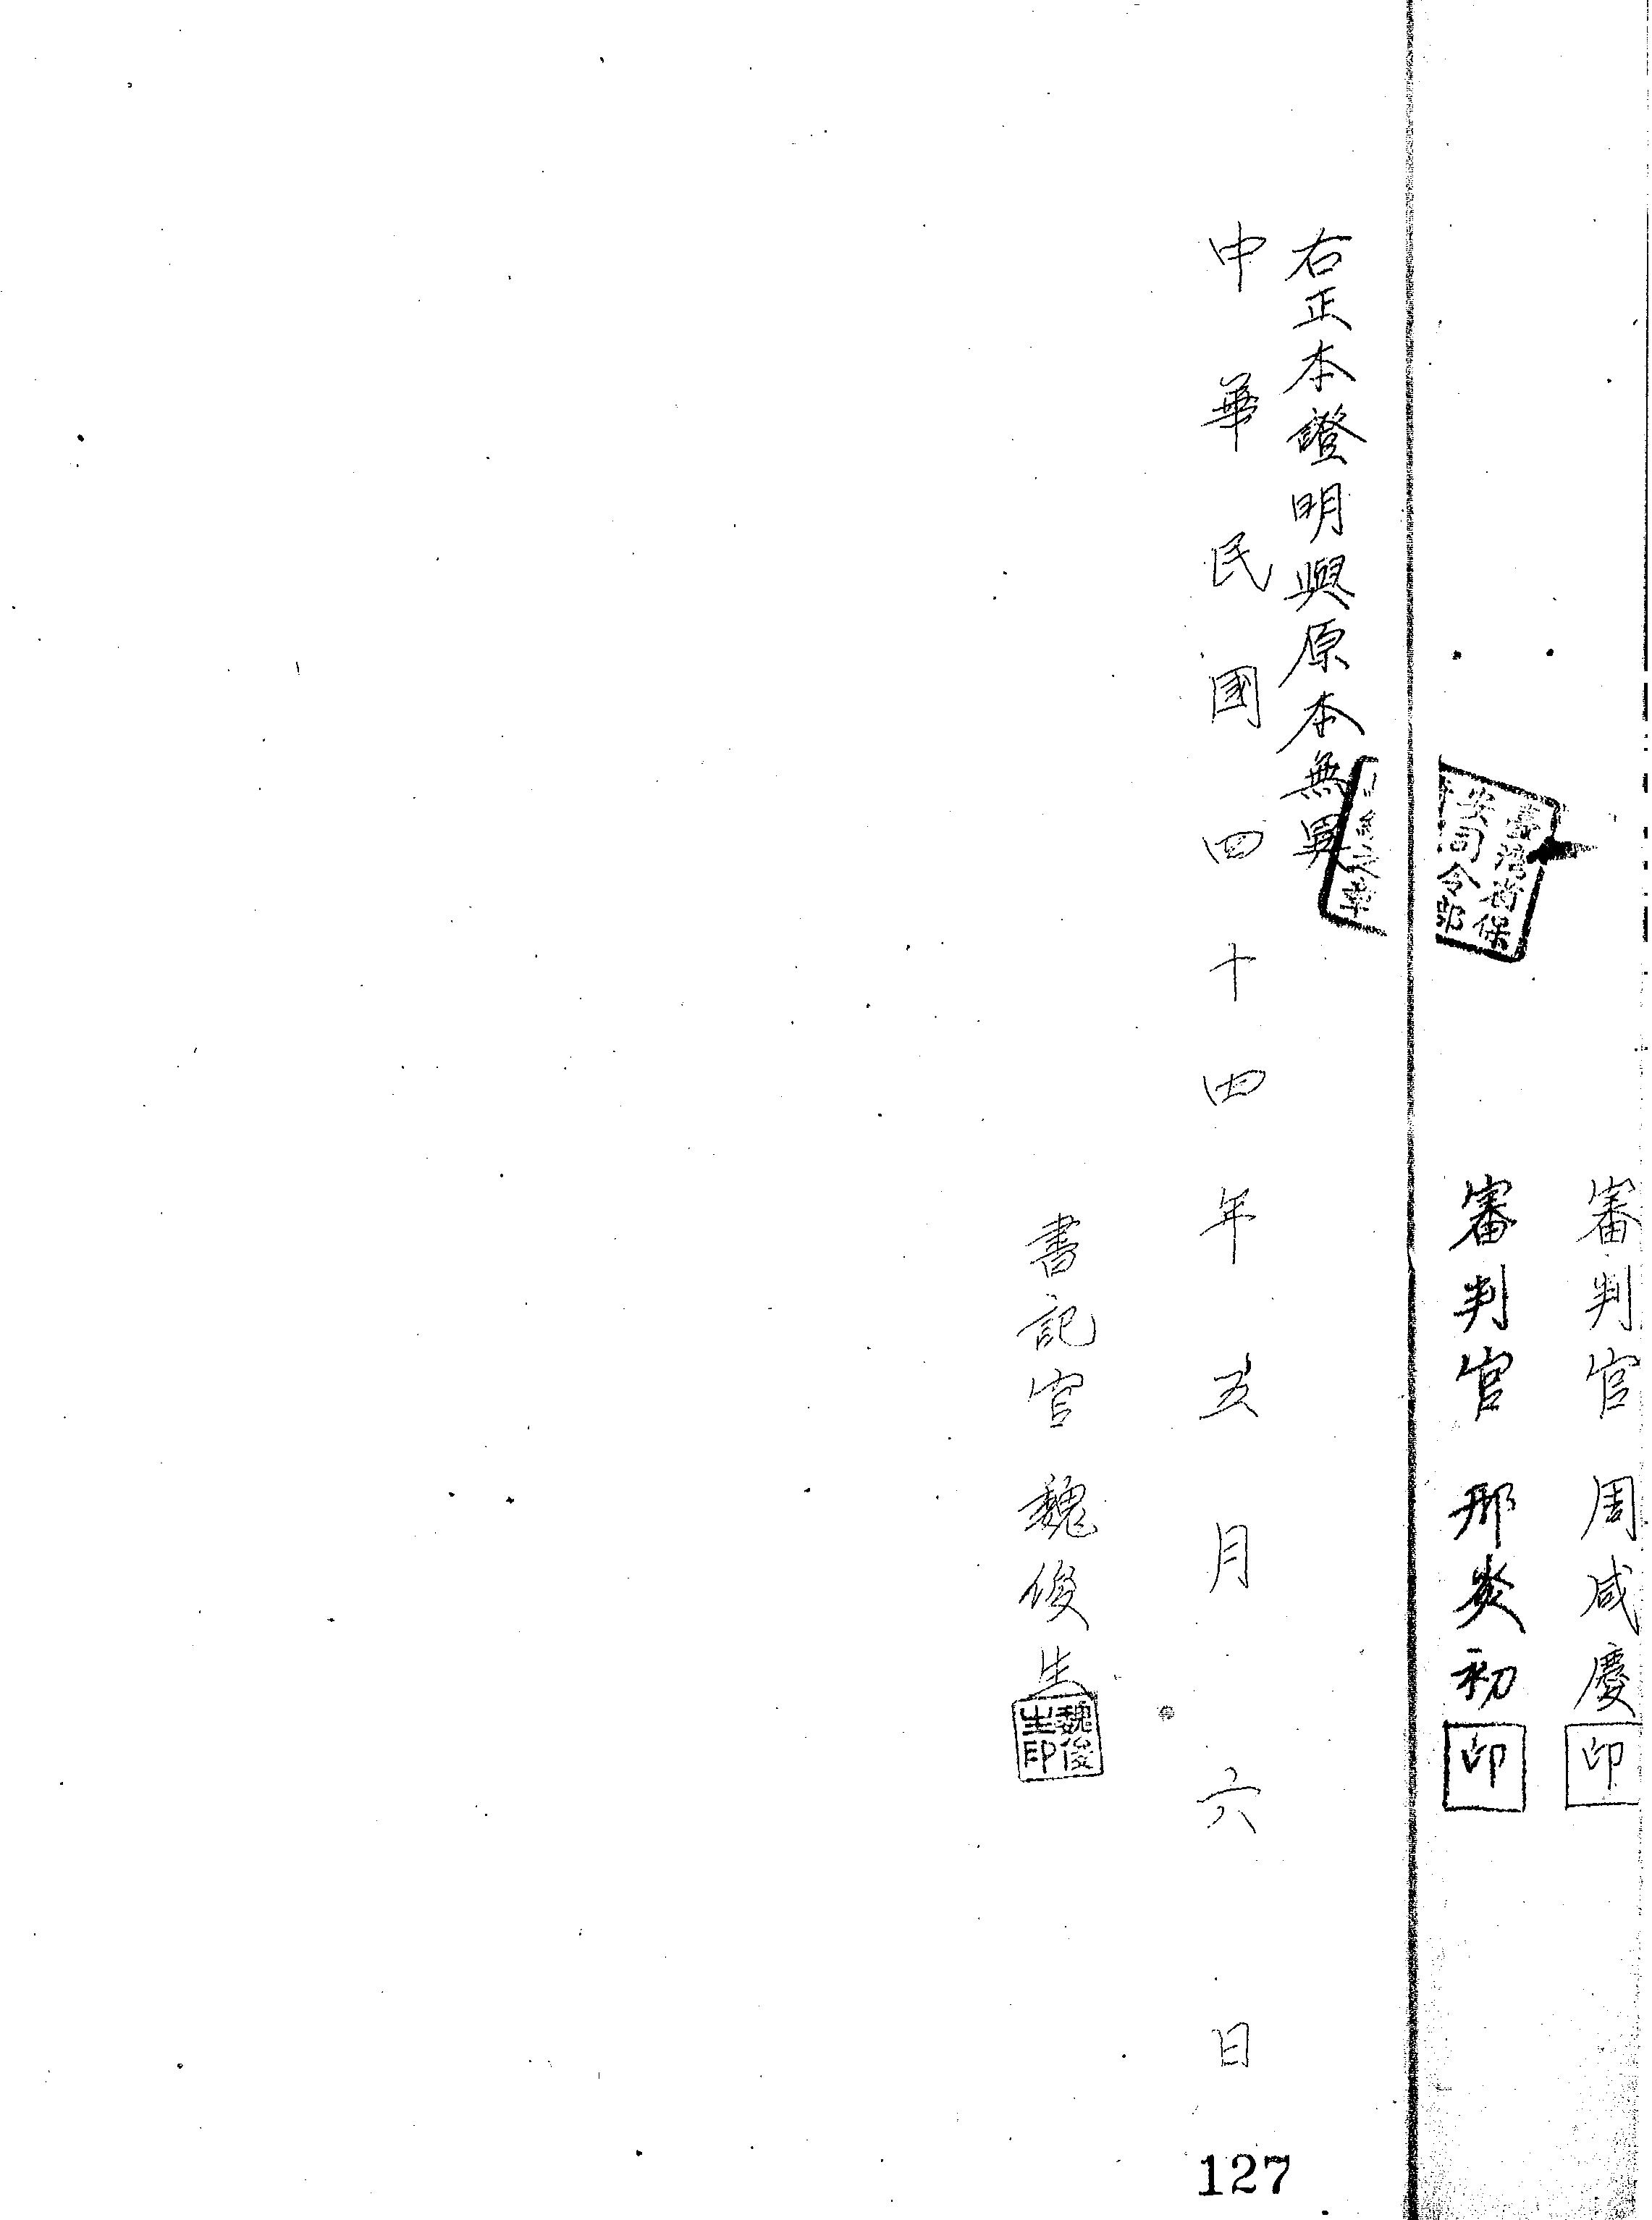 審判官 周咸慶 印
審判官 邢炎初 印
臺灣省保
安司令部
之章
右正本證明與原本無異
中華民國四十四年五月六日
書記官 魏俊生
魏俊
生印
127